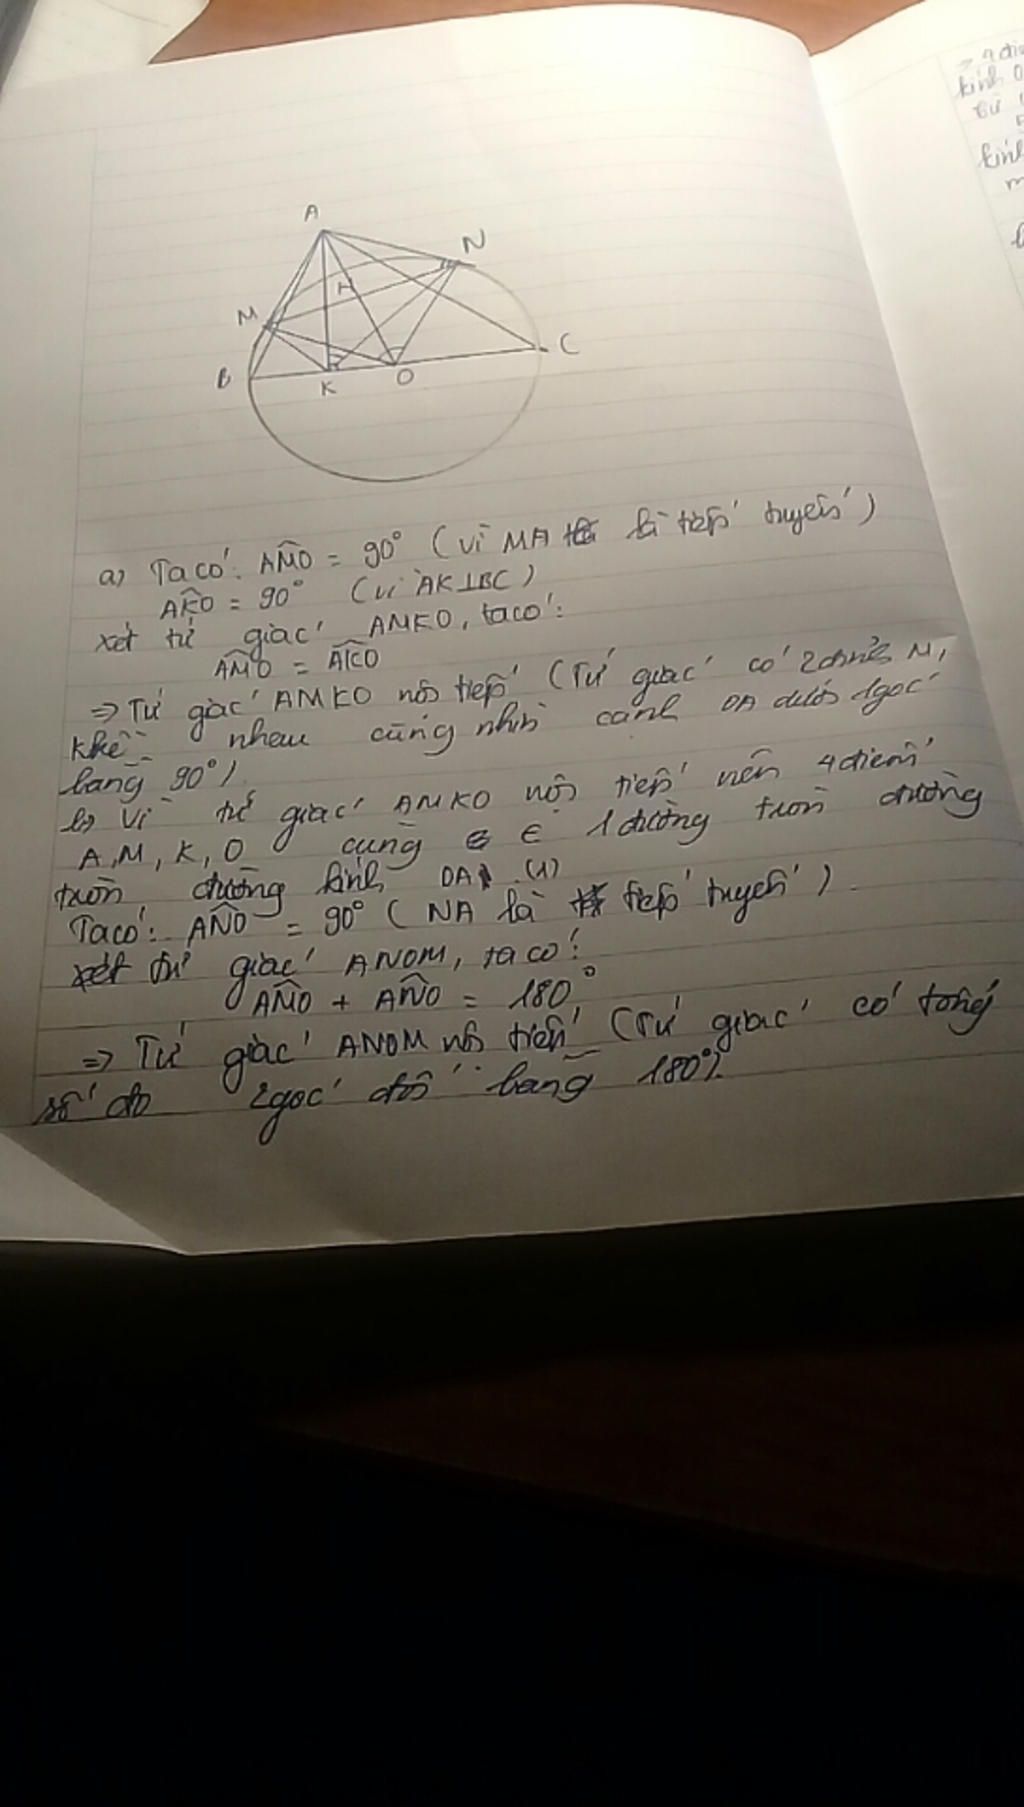 A
N
H
M
C
B
K
O
a) Ta có: AM̂O = 90° (vì MA là tiếp tuyến)
AK̂O = 90° (vì AK⊥BC)
xét tứ giác AMKO, ta có:
AM̂O = AK̂O
=> Tứ giác AMKO nội tiếp (Tứ giác có 2 đỉnh M,
K kề nhau cùng nhìn cạnh OA dưới 1 góc
bằng 90°)
b) Vì tứ giác AMKO nội tiếp nên 4 điểm
A, M, K, O cùng ∈ 1 đường tròn đường
tròn đường kính OA (1)
Ta có: AN̂O = 90° (NA là tiếp tuyến).
xét tứ giác ANOM, ta có:
AM̂O + AN̂O = 180°
=> Tứ giác ANOM nội tiếp (Tứ giác có tổng
số đo 2 góc đối bằng 180°)
=> 4
kính
từ
kính
m